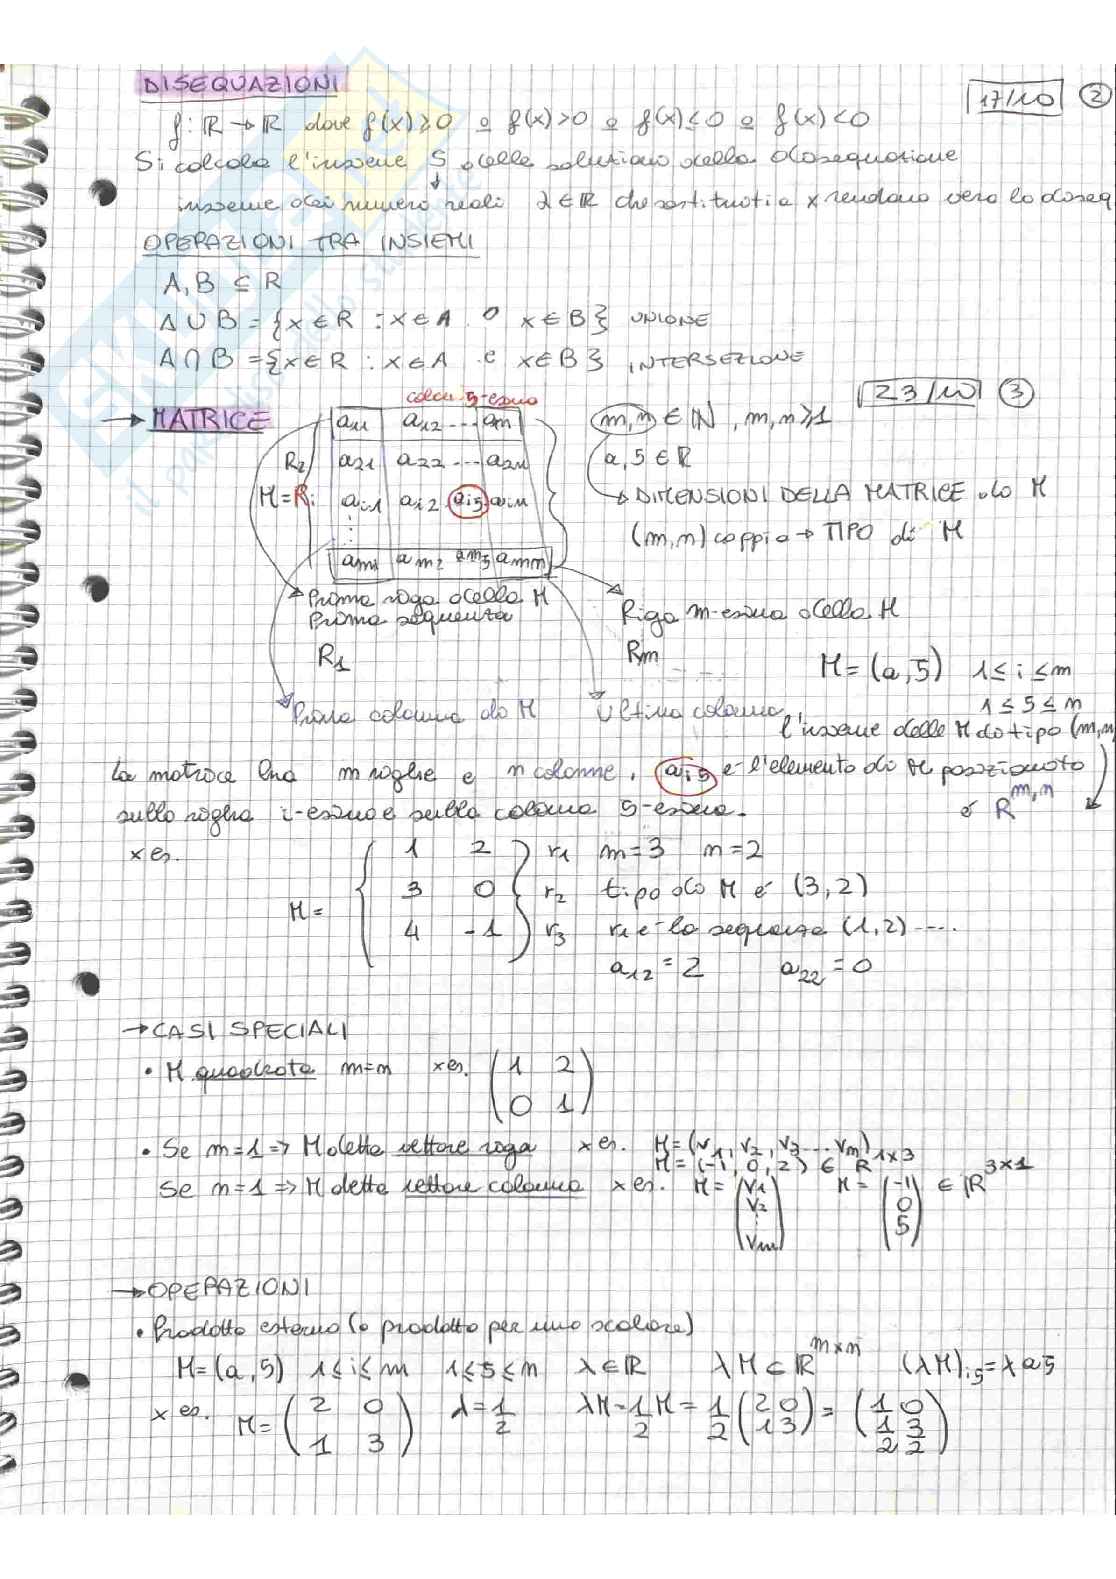 DISEQUAZIONI
17/10 2
f: ℝ → ℝ dove f(x)≥0 o f(x)>0 o f(x)≤0 o f(x)<0
Si calcola l'insieme S delle soluzioni della disequazione
insieme dei numeri reali λ∈ℝ che sostituiti a x rendano vera la diseq
OPERAZIONI TRA INSIEMI
A, B ⊆ R
A ∪ B = {x ∈ R : x ∈ A o x ∈ B} UNIONE
A ∩ B = {x ∈ R : x ∈ A e x ∈ B} INTERSEZIONE
23/10 3
→ MATRICE
colon 5-esima
a11 a12 ... a1n
R2 a21 a22 ... a2n
M = Ri ai1 ai2 ai5 ain
am1 am2 am5 amn
m,n ∈ ℕ, m,n ≥ 1
a,5 ∈ ℝ
→ DIMENSIONI DELLA MATRICE di M
(m,n) coppia → TIPO di M
Prima riga della M
Prima sequenza
R1
Riga m-esima della M
Rm
Prima colonna di M
Ultima colonna
M = (a,5) 1 ≤ i ≤ m
1 ≤ 5 ≤ m
l'insieme delle M di tipo (m,n
La matrice ha m righe e n colonne, ai5 è l'elemento di M posizionato
sulla riga i-esima e sulla colonna 5-esima.
è R^m,n
x es.
M =
1 2 r1 m=3 n=2
3 0 r2 tipo di M è (3,2)
4 -1 r3 r1 è la sequenza (1,2) ....
a12 = 2 a22 = 0
→ CASI SPECIALI
• M quadrata m=n x es. (1 2
0 1)
• Se m=1 => M detta vettore riga x es. M = (v1, v2, v3 ... vm)
M = (-1, 0, 2) ∈ R^1x3
Se n=1 => M detta vettore colonna x es. M = (v1 v2 ⋮ vm) M = (-1 0 5) ∈ ℝ^3x1
→ OPERAZIONI
• Prodotto esterno (o prodotto per uno scalare)
M = (a,5) 1 ≤ i ≤ m 1 ≤ 5 ≤ n λ ∈ ℝ λM ∈ ℝ^mxn (λM)i5 = λ a5
x es. M = (2 0
1 3) λ = 1/2 λM = 1/2 M = 1/2 (2 0 1 3) = (1 0 1/2 3/2)